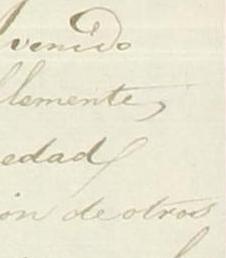 venido
lemente,
edad
ón de otros